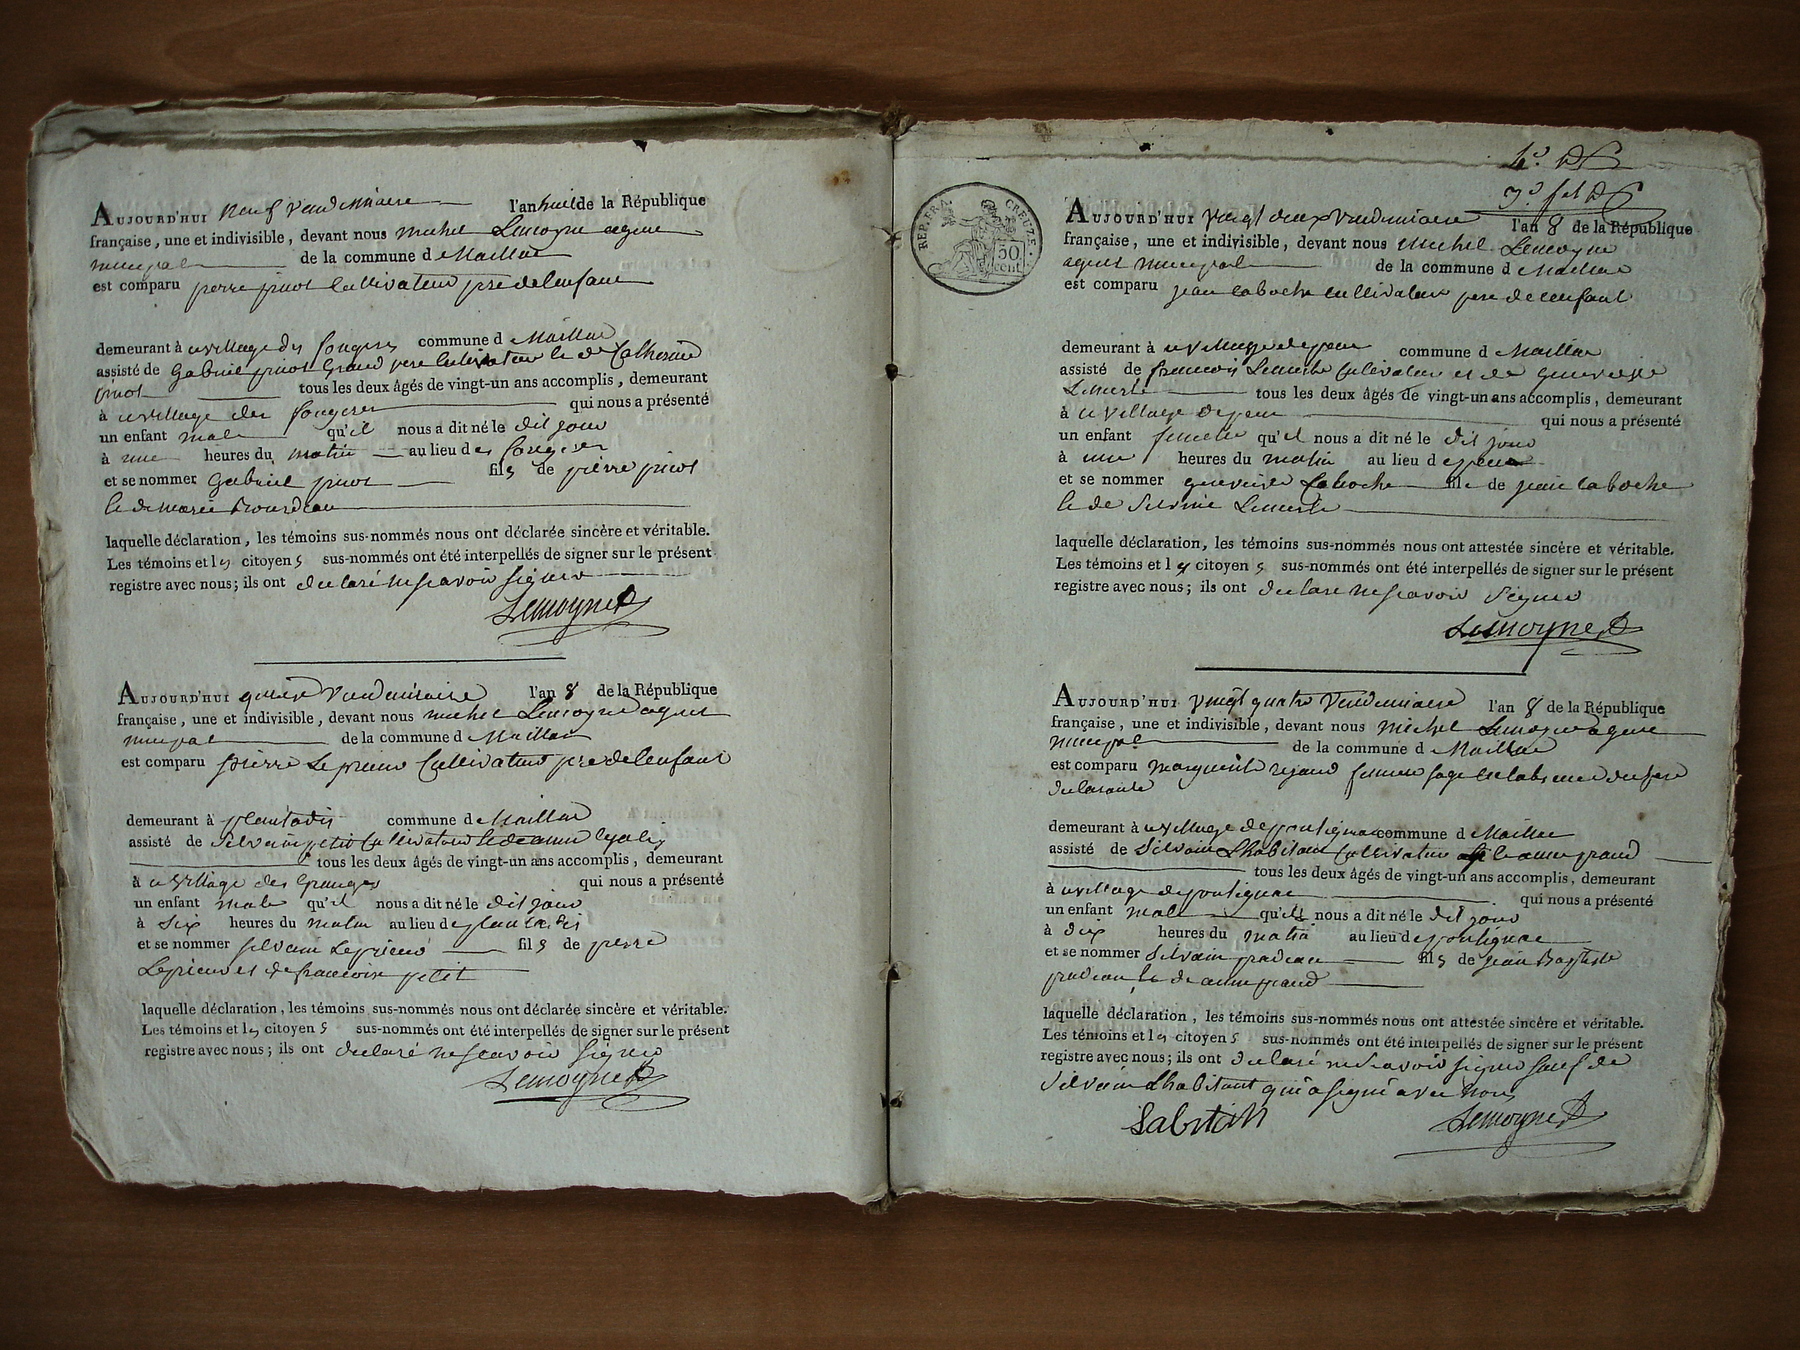 Aujourd'hui neuf vendemiaire l'an huil de la République
française, une et indivisible, devant nous michel Lemoyne agent
municipal de la commune d Maillac
est comparu pierre pinot Cultivateur pere de lenfant
demeurant à u village des fougeres commune d Maillac
assisté de Gabriel pinot Grand pere Cultivateur & de Catherine
pinot tous les deux âgés de vingt-un ans accomplis, demeurant
à u village des fougeres qui nous a présenté
un enfant male qu'il nous a dit né le dit jour
à une heures du matin au lieu des fougeres
et se nommer Gabriel pinot fils de pierre pinot
& de marie
laquelle déclaration, les témoins sus-nommés nous ont déclarée sincère et véritable.
Les témoins et les citoyens sus-nommés ont été interpellés de signer sur le présent
registre avec nous; ils ont declaré ne scavoir signer
Lemoyne
Aujourd'hui vendemiaire l'an 8 de la République
française, une et indivisible, devant nous michel Lemoyne agent
municipal de la commune d Maillac
est comparu pierre Leprieur Cultivateur pere de lenfant
demeurant à plantadis commune d Maillac
assisté de Silvain petit Cultivateur & de anne
tous les deux âgés de vingt-un ans accomplis, demeurant
à u village des Granges qui nous a présenté
un enfant male qu'il nous a dit né le dit jour
à six heures du matin au lieu de plantadis
et se nommer silvain Leprieur fils de pierre
Leprieur et de francoise petit
laquelle déclaration, les témoins sus-nommés nous ont déclarée sincère et véritable.
Les témoins et les citoyens sus-nommés ont été interpellés de signer sur le présent
registre avec nous; ils ont declaré ne scavoir signer
Lemoyne
REP. FRA. CREUZE.
50
cent.
Aujourd'hui vingt deux vendemiaire l'an 8 de la République
française, une et indivisible, devant nous Michel Lemoyne
agent municipal de la commune d Maillac
est comparu jean laboche cultivateur pere de lenfant
demeurant à u village de commune d Maillac
assisté de francois Lemerle Cultivateur et de genevieve
Lemerle tous les deux âgés de vingt-un ans accomplis, demeurant
à u village de qui nous a présenté
un enfant femelle qu'il nous a dit né le dit jour
à une heures du matin au lieu de
et se nommer genevieve Laboche fille de jean laboche
& de Silvine Lemerle
laquelle déclaration, les témoins sus-nommés nous ont attestée sincère et véritable.
Les témoins et les citoyens sus-nommés ont été interpellés de signer sur le présent
registre avec nous; ils ont declaré ne scavoir Signer
Lemoyne
Aujourd'hui vingt quatre Vendemiaire l'an 8 de la République
française, une et indivisible, devant nous Michel Lemoyne agent
municipal de la commune d Maillac
est comparu marguerite femme sage & labsence du pere
de lenfant
demeurant à u village de poulignac commune d Maillac
assisté de Silvain Lhabitant Cultivateur & anne grand
tous les deux âgés de vingt-un ans accomplis, demeurant
à u village de poulignac qui nous a présenté
un enfant male qu'ils nous a dit né le dit jour
à dix heures du matin au lieu de poulignac
et se nommer Silvain pradeau fils de jean Baptiste
pradeau & de anne grand
laquelle déclaration, les témoins sus-nommés nous ont attestée sincère et véritable.
Les témoins et les citoyens sus-nommés ont été interpellés de signer sur le présent
registre avec nous; ils ont declaré ne Scavoir signer sauf de
Silvain Lhabitant qui a signé avec nous
Labitan Lemoyne